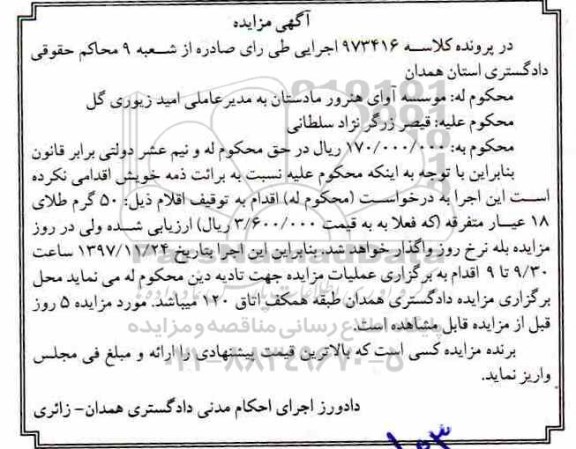 آگهی مزایده
در پرونده کلاسه ۹۷۳۴۱۶ اجرایی طی رای صادره از شعبه ۹ محاکم حقوقی
دادگستری استان همدان
محکوم له: موسسه آوای هنرور مادستان به مدیرعاملی امید زیوری گل
محکوم علیه: قیصر زرگر نژاد سلطانی
محکوم به: ۱۷۰/۰۰۰/۰۰۰ ریال در حق محکوم له و نیم عشر دولتی برابر قانون
بنابراین با توجه به اینکه محکوم علیه نسبت به برائت ذمه خویش اقدامی نکرده
است این اجرا به درخواست (محکوم له) اقدام به توقیف اقلام ذیل: ۵۰ گرم طلای
۱۸ عیار متفرقه (که فعلا به به قیمت ۳/۶۰۰/۰۰۰ ریال) ارزیابی شده ولی در روز
مزایده بله نرخ روز واگذار خواهد شد. بنابراین این اجرا بتاریخ ۱۳۹۷/۱۲/۲۴ ساعت
۹/۳۰ تا ۹ اقدام به برگزاری عملیات مزایده جهت تادیه دین محکوم له می نماید محل
برگزاری مزایده دادگستری همدان طبقه همکف اتاق ۱۲۰ میباشد. مورد مزایده ۵ روز
قبل از مزایده قابل مشاهده است.
پایگاه اطلاع رسانی مناقصه و مزایده
برنده مزایده کسی است که بالاترین قیمت پیشنهادی را ارائه و مبلغ فی مجلس
۰۲۱-۸۸۳۴۹۶۷۰-۵
واریز نماید.
دادورز اجرای احکام مدنی دادگستری همدان- زائری